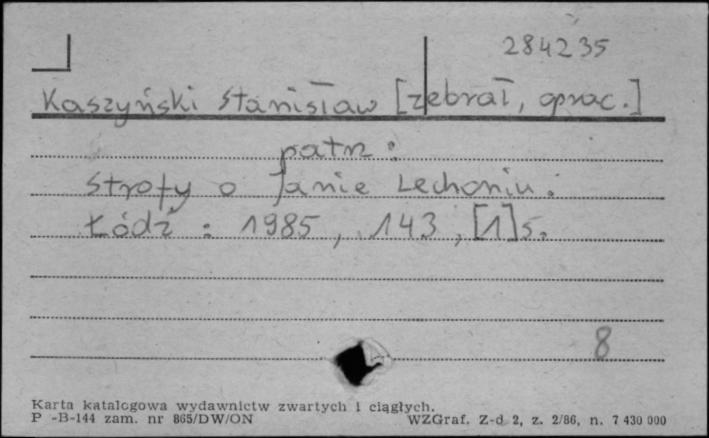 284235
Kaszyński Stanisław [zebrał, oprac.]
patrz:
Strofy o Janie Lechoniu.
Łódź : 1985, 143, [1] s.
8
Karta katalogowa wydawnictw zwartych i ciągłych.
P -B-144 zam. nr 865/DW/ON WZGraf. Z-d 2, z. 2/86, n. 7 430 000